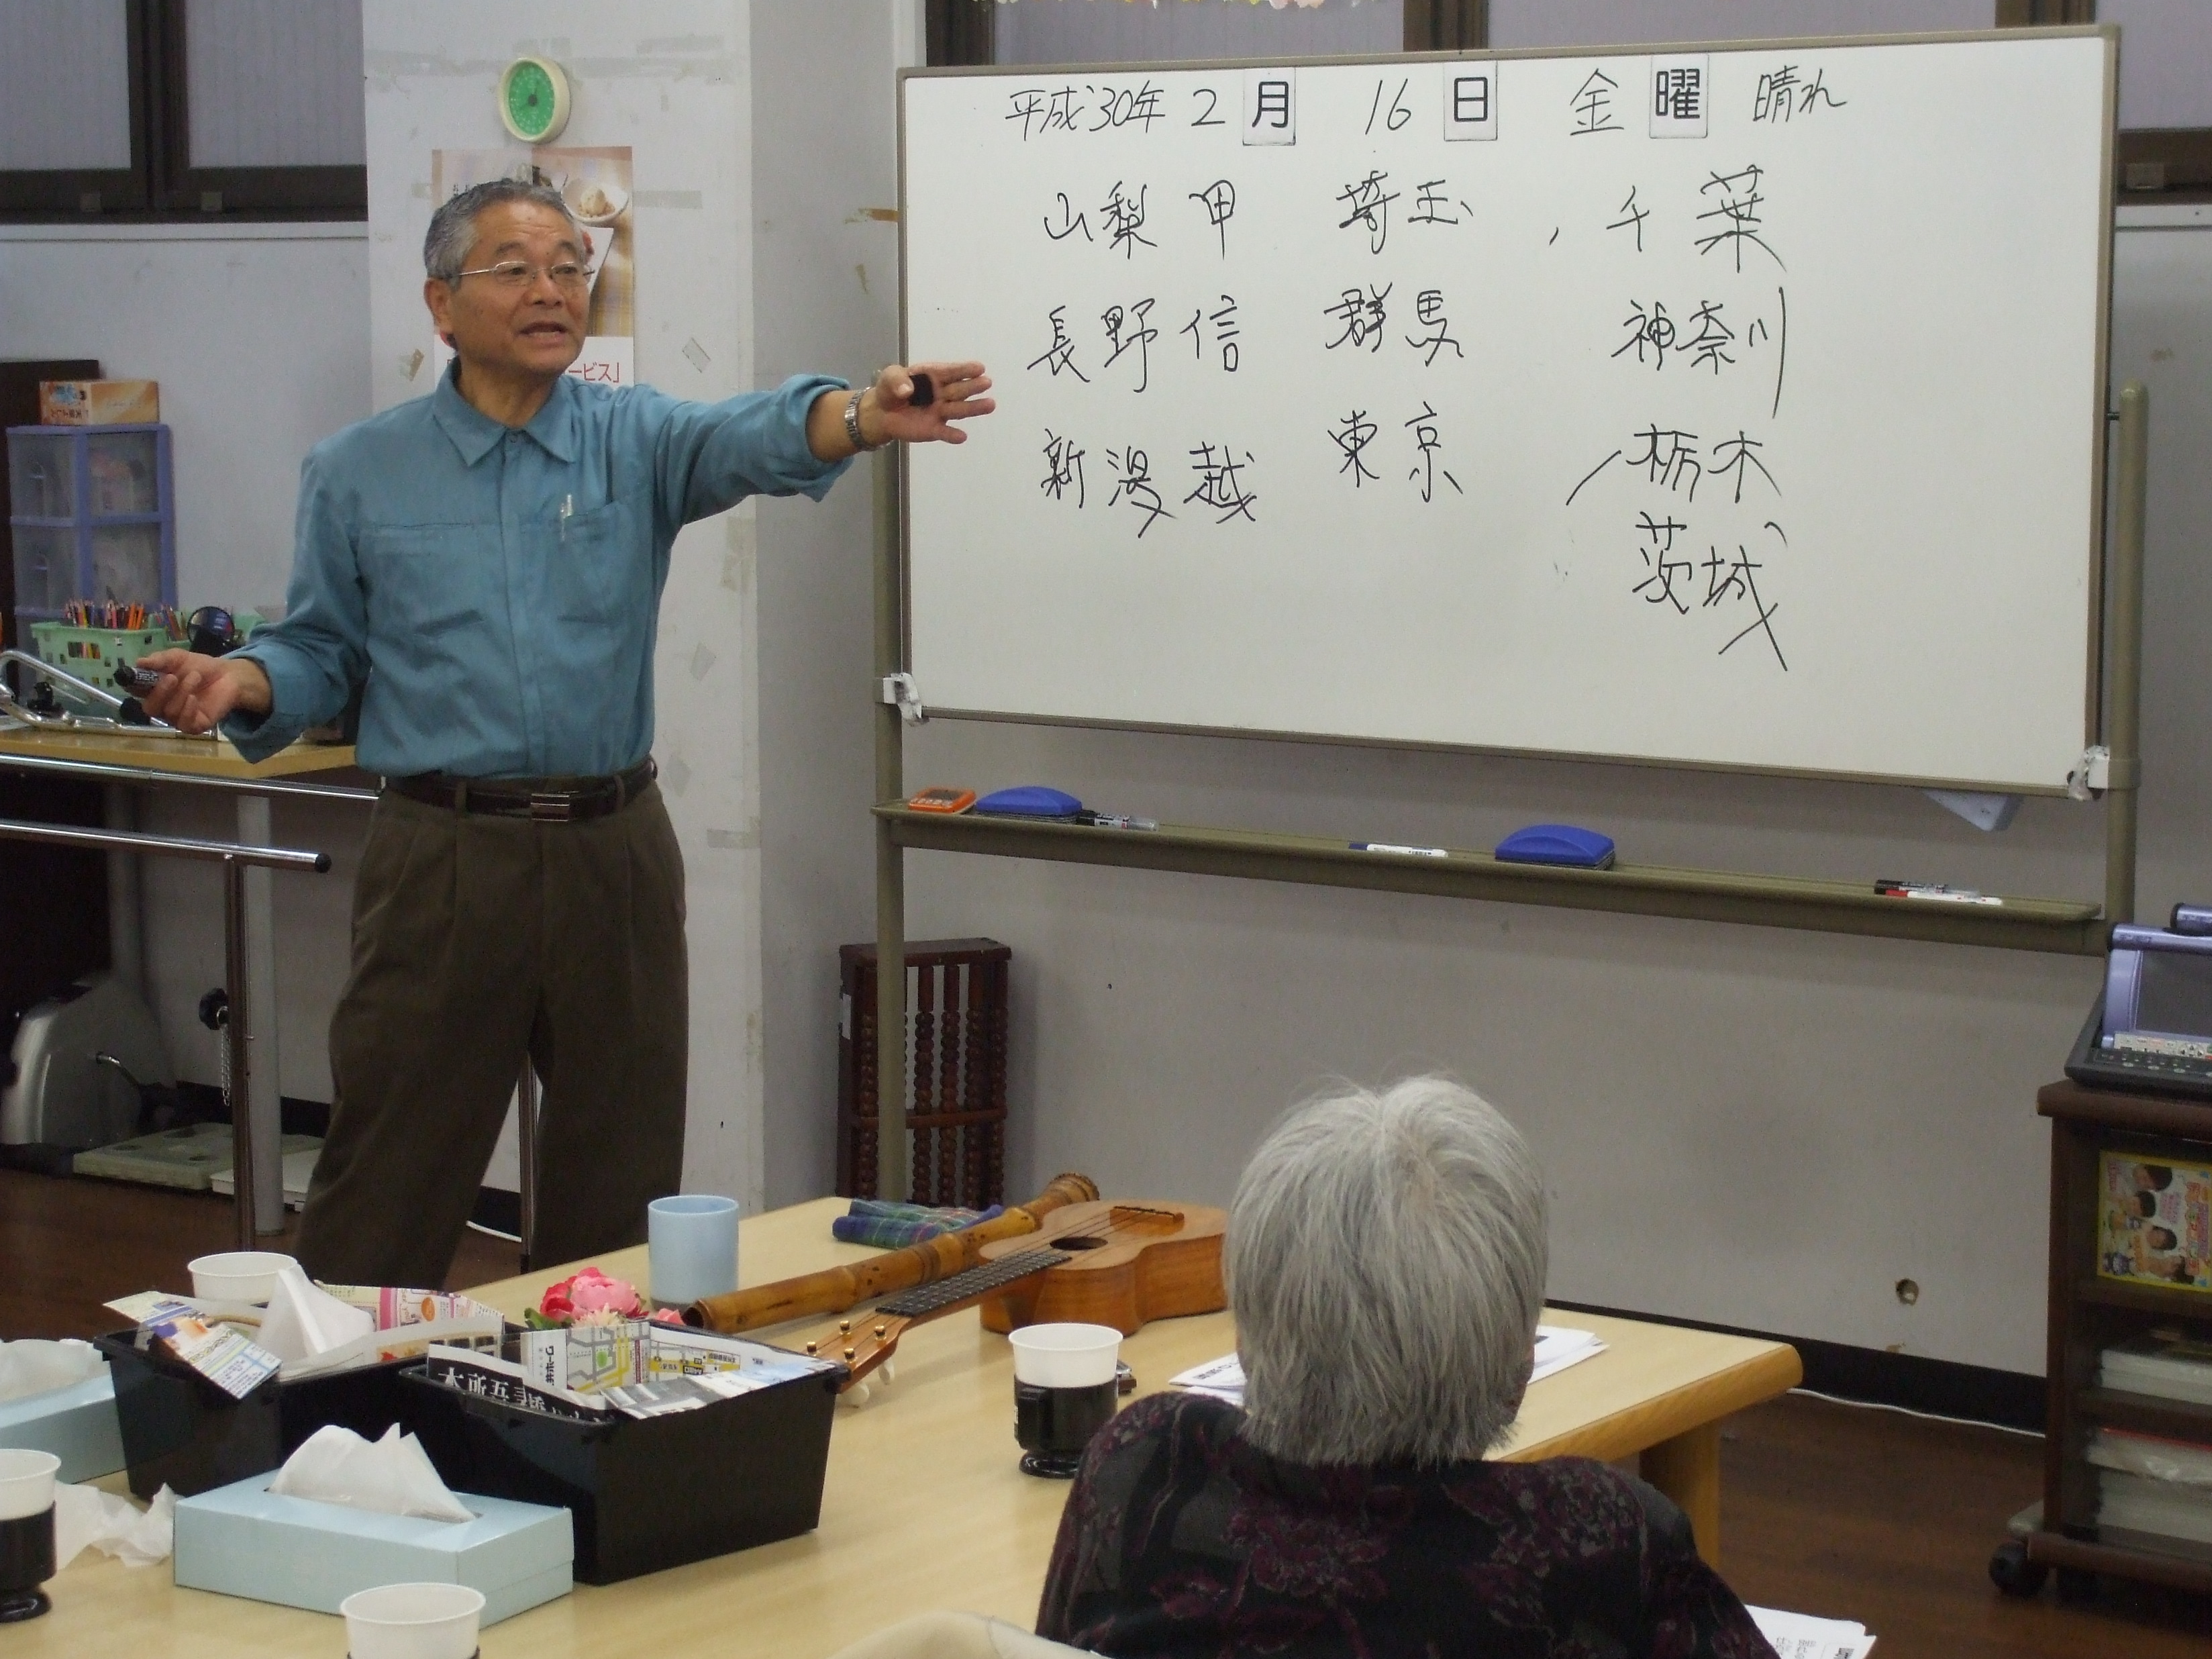 平成30年 2 月 16 日 金 曜 晴れ
山梨 甲 埼玉 千葉
長野 信 群馬 神奈川
新潟 越 東京 栃木
茨城
ービス」